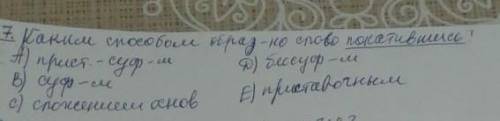 7. Каким способом образ-но слово покатившись?
А) прист.-суф-м
D) бессуф-м
В) суф-м
Е) приставочным
С) сложением основ